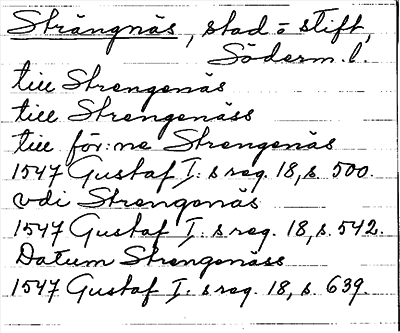 Strängnäs, stad o stift,
Söderm. l.
till Strengenäs
till Strengenäss
till för:ne Strengenäs
1547 Gustaf I:s reg. 18, s. 500.
vdi Strengenäs
1547 Gustaf I:s reg. 18, s. 542.
Datum Strengenäss
1547 Gustaf I:s reg. 18, s. 639.